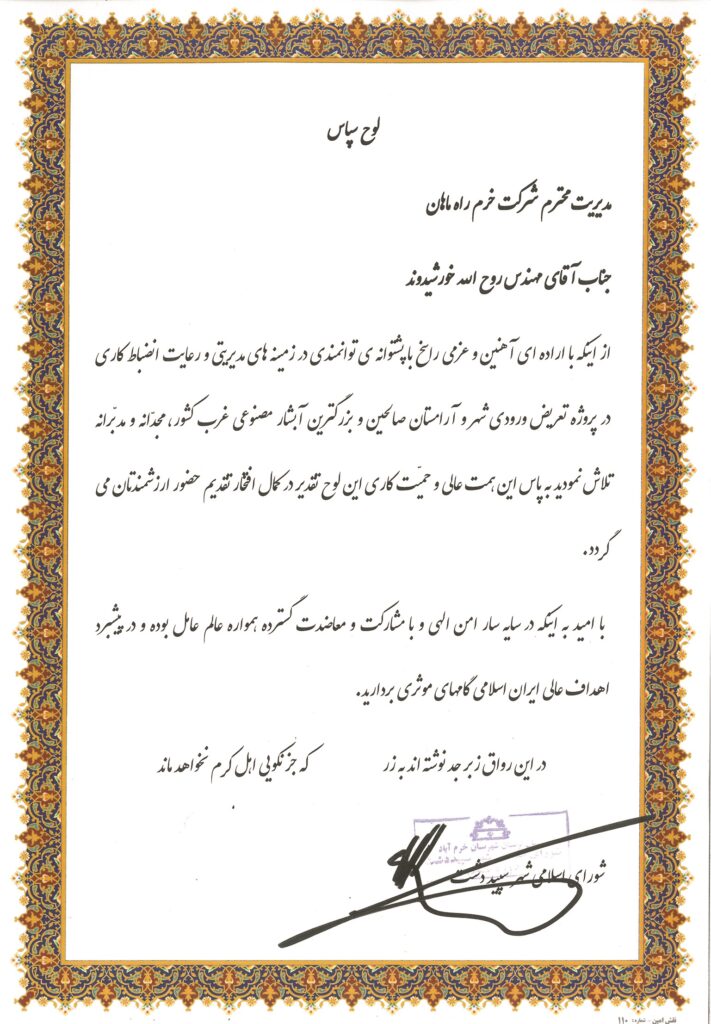 لوح سپاس
مدیریت محترم شرکت خرم راه ماهان
جناب آقای مهندس روح الله خورشیدوند
از اینکه با اراده ای آهنین و عزمی راسخ با پشتوانه ی توانمندی در زمینه های مدیریتی و رعایت انضباط کاری
در پروژه تعریض ورودی شهر و آرامستان صالحین و بزرگترین آبشار مصنوعی غرب کشور، مجدّانه و مدبّرانه
تلاش نمودید به پاس این همت عالی و حمیّت کاری این لوح تقدیر در کمال افتخار تقدیم حضور ارزشمندتان می
گردد.
با امید به اینکه در سایه سار امن الهی و با مشارکت و معاضدت گسترده همواره عالم عامل بوده و در پیشبرد
اهداف عالی ایران اسلامی گامهای موثری بردارید.
در این رواق زبرجد نوشته اند به زر که جز نکویی اهل کرم نخواهد ماند
شهرستان خرم آباد
سپیددشت
شورای اسلامی شهر سپید دشت
نقش امین - شماره: ۱۱۰